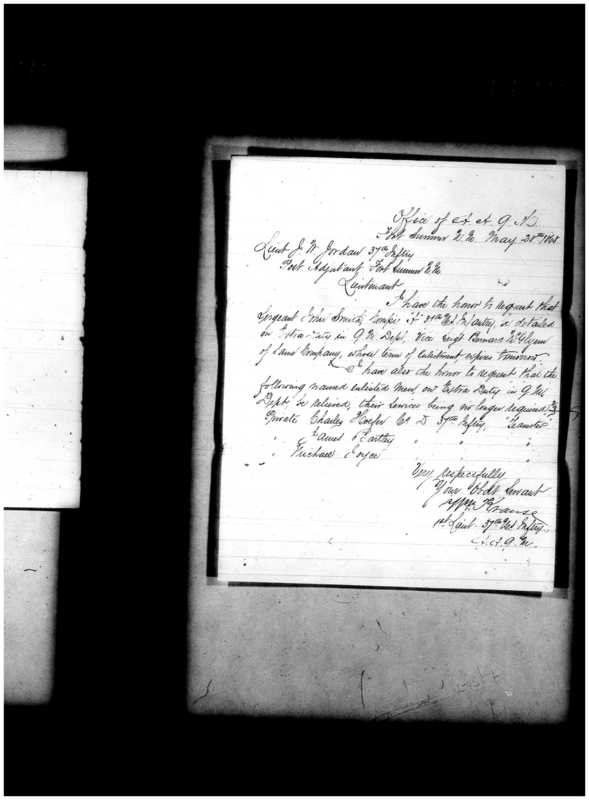 Office of A. A. Q. M.
Fort Sumner N. M. May 28th 1868.
Lieut J. W. Jordan 37th Inftry
Post Adjutant Fort Sumner N. M.
Lieutenant
I have the honor to request that
Sergeant John Smith, Compy "I" 37th US Infantry, is detailed
on Extra Duty in Q. M. Dept, vice Sergt Bernard
of same Company, whose term of enlistment expires tomorrow
I have also the honor to request that the
following named enlisted men, on Extra Duty in Q. M.
Dept be relieved, their services being no longer required, viz
Private Charles Hoefer Co D 37th Inftry, Teamster
" James " " "
" Michael Joyce " " "
Very respectfully
Your Obdt Servant
Wm. Krause
1st Lieut. 37th US Inftry.
A. A. Q. M.